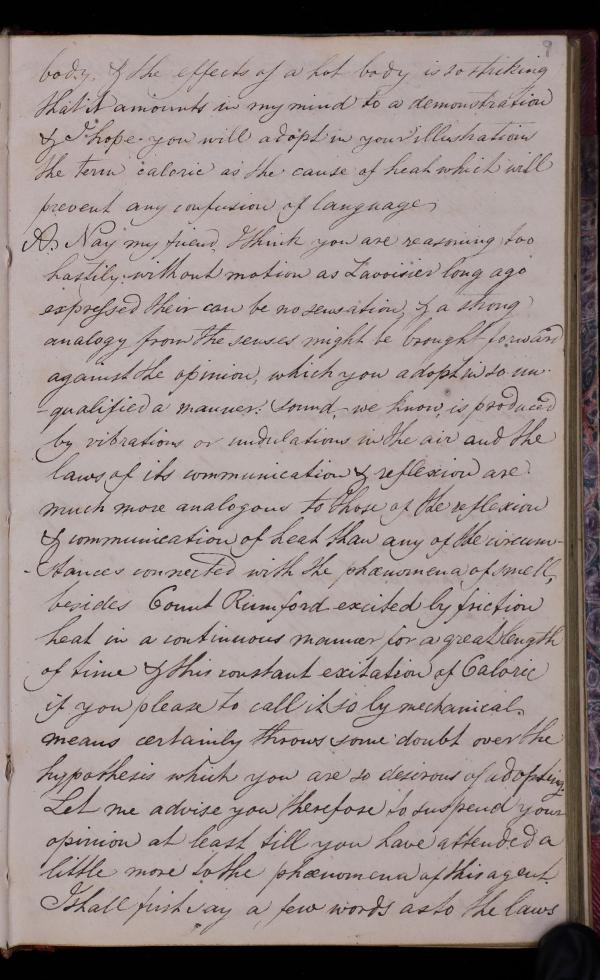 9
body. & the effects of a hot body is so striking
that it amounts in my mind to a demonstration
& I hope you will adopt in your illustrations
the term caloric as the cause of heat which will
prevent any confusion of language,
A. Nay my friend, I think you are reasoning too
hastily. without motion as Lavoisier long ago
expressed their can be no sensation, & a strong
analogy from the senses might be brought forward
against the opinion, which you adopt in so un-
-qualified a manner: Sound, we know, is produced
by vibrations or undulations in the air and the
laws of its communication & reflexion are
much more analogous to those of the reflexion
& communication of heat than any of the circum-
-stances connected with the phænomena of smell,
besides Count Rumford excited by friction
heat in a continuous manner for a great length
of time & this constant exitation of Caloric
if you please to call it so by mechanical.
means certainly throws some doubt over the
hypothesis which you are so desirous of adopting.
Let me advise you therefore to suspend your
opinion at least till you have attended a
little more to the phænomena of this agent
I shall first say a few words as to the laws